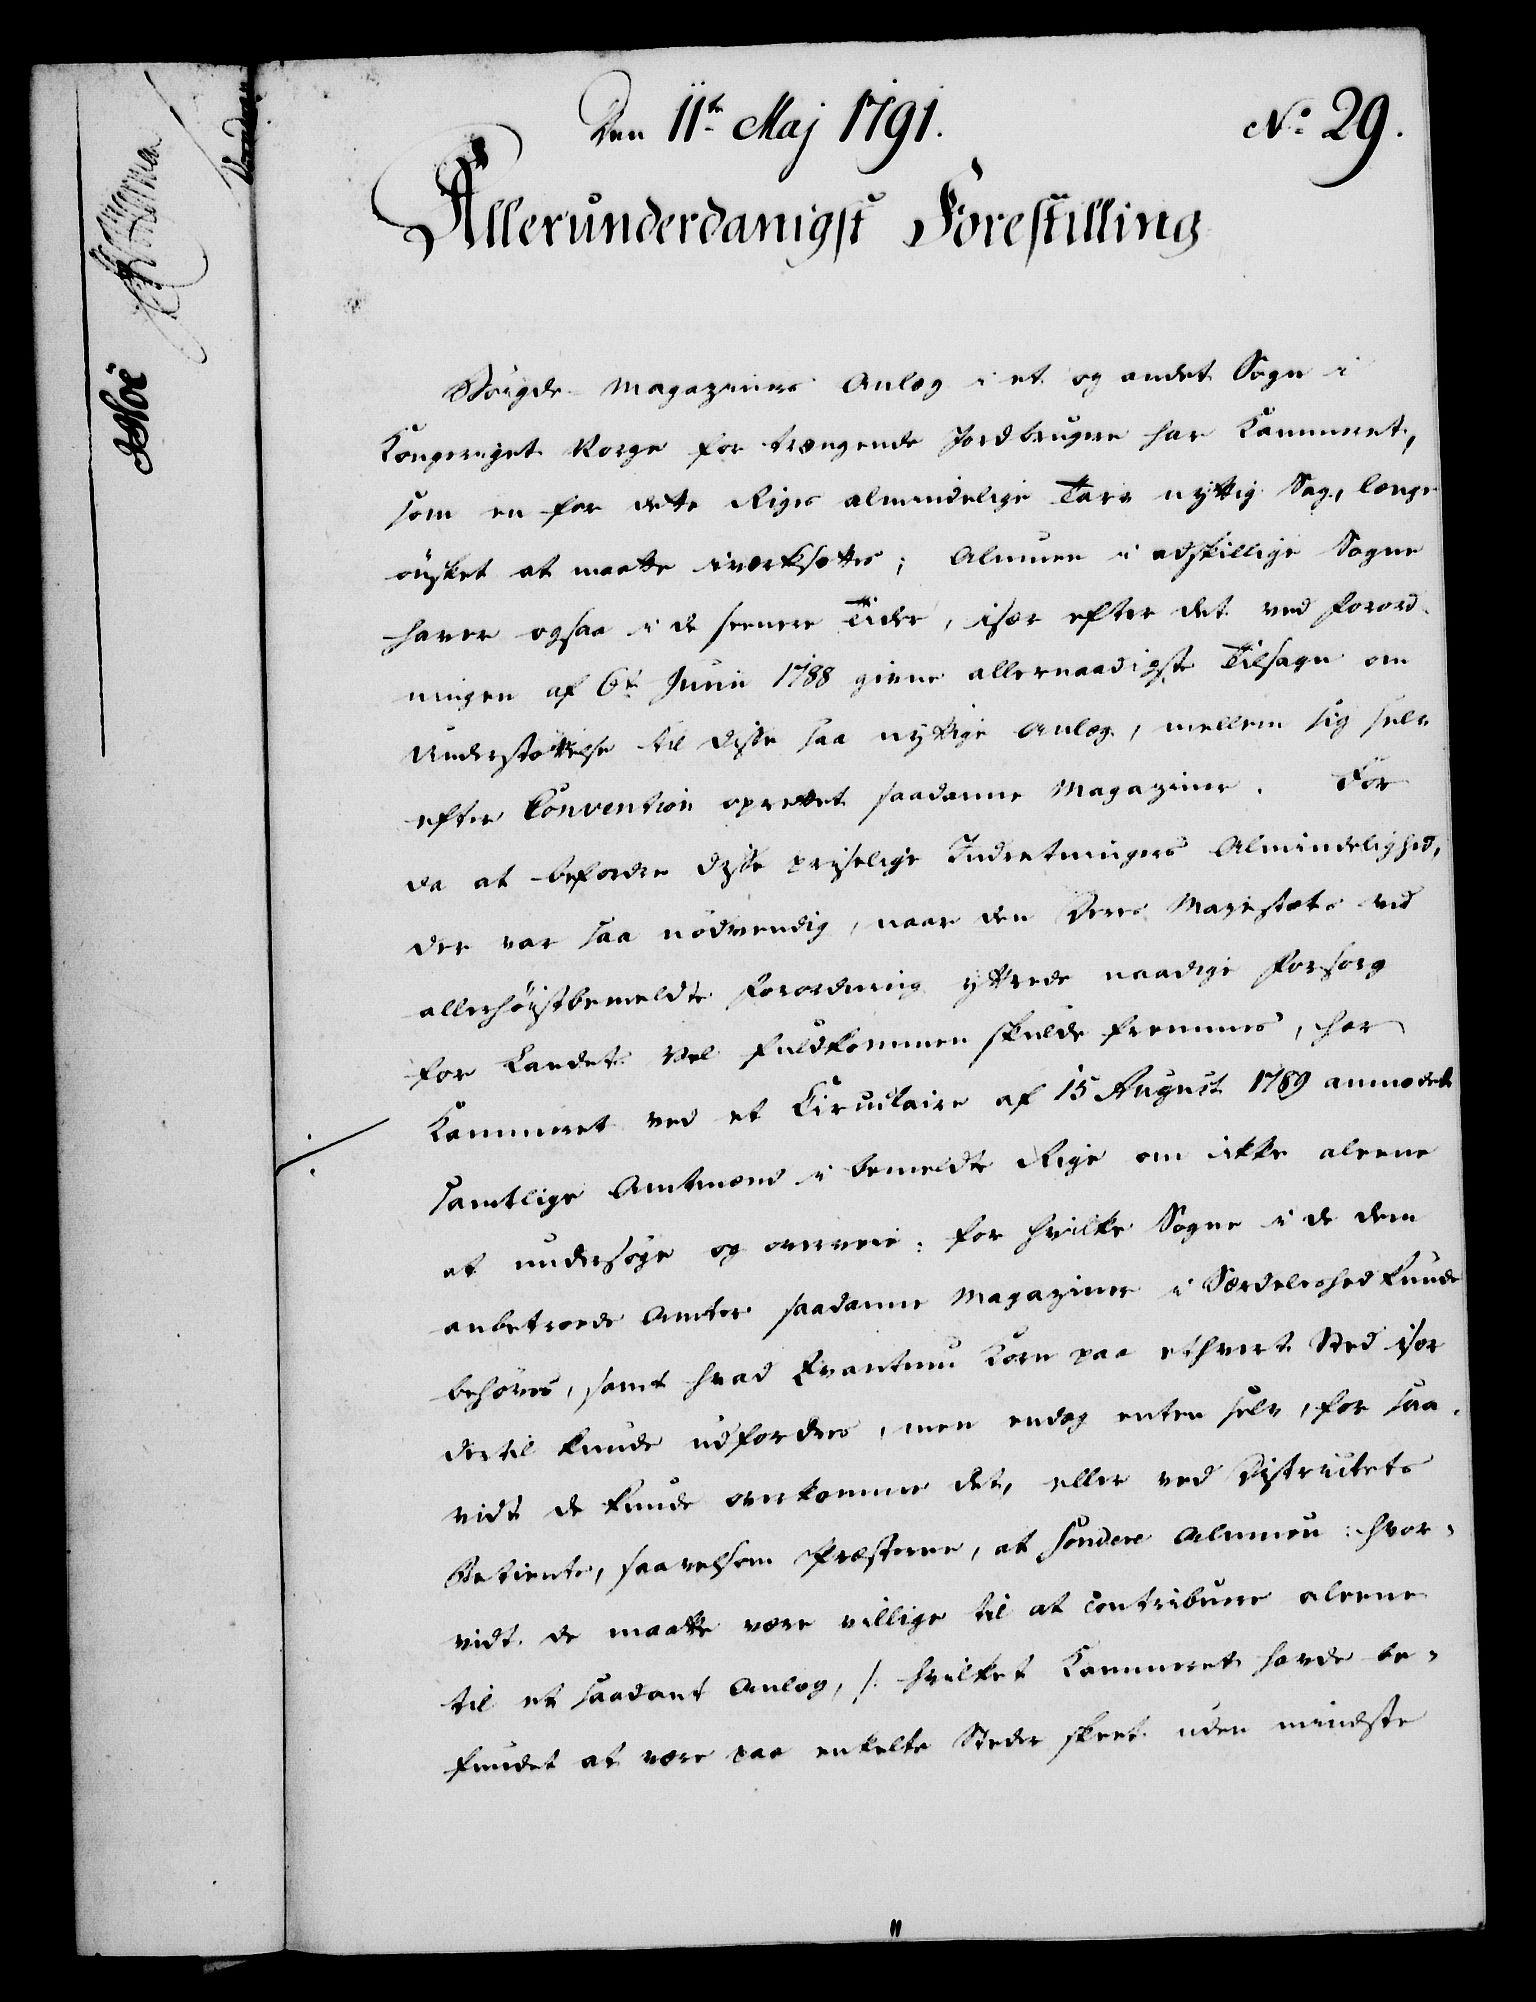 Den 11te Maj 1791.
No 29.
Allerunderdanigst Forestilling
Bÿigde-Magaziners Anlæg i et og andet Sogn i
Kongeriget Norge for trængende Jordbrugere har Kammeret,
som en for dette Riges almindelige Tarv nyttig Sag, længe
ønsket at maatte iværksættes; Almuen i adskillige Sogne
haver ogsaa i de seenere Tider, især efter det ved Forord-
ningen af 6te Junii 1788 givne allernaadigste Tilsagn om
Understøttelse til disse saa nyttige Anlæg, mellem sig selv
efter Convention oprettet saadanne Magaziner. For
da at befordre disse priselige Indretningers Almindelighed,
der var saa nødvendig, naar den Deres Majestæts ved
allerhøistbemeldte Forordning yttrede naadige Forsorg
for Landets Vel fuldkommen skulde fremmes, har
Kammeret ved et Circulaire af 15 August 1789 anmodede
samtlige Amtmænd i bemeldte Rige om ikke aleene
at undersøge og overveie: for hvilke Sogne i de dem
anbetroede Amter saadanne Magaziner i Særdeleshed kunde
behøves, samt hvad Qvantum Korn paa ethvert Sted især
dertil kunde udfordres, men endog enten selv, for saa-
vidt de kunde overkomme det, eller ved Districtets
Betiente, saavelsom Præsterne, at sondere Almuen: hvor-
vidt de maatte være villige til at contribuere aleene
til et saadant Anlæg, /: hvilket Kammeret havde be-
fundet at være paa enkelte Steder skeet uden mindste